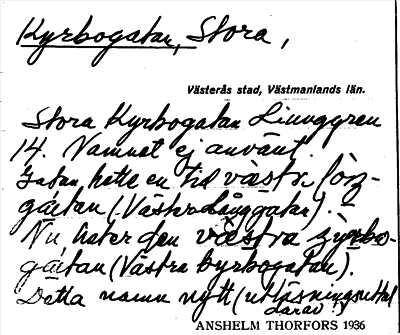 Kyrbogatan, Stora,
Västerås stad, Västmanlands län.
Stora Kyrbogatan Linnggren
14. Namnet ej använt.
Gatan hette en tid västr.
gatan (: Västerlånggatan). –
Nu heter den västra
gatan (Västra Kyrbogatan).
Detta namn nytt (
därav
ANSHELM THORFORS 1936